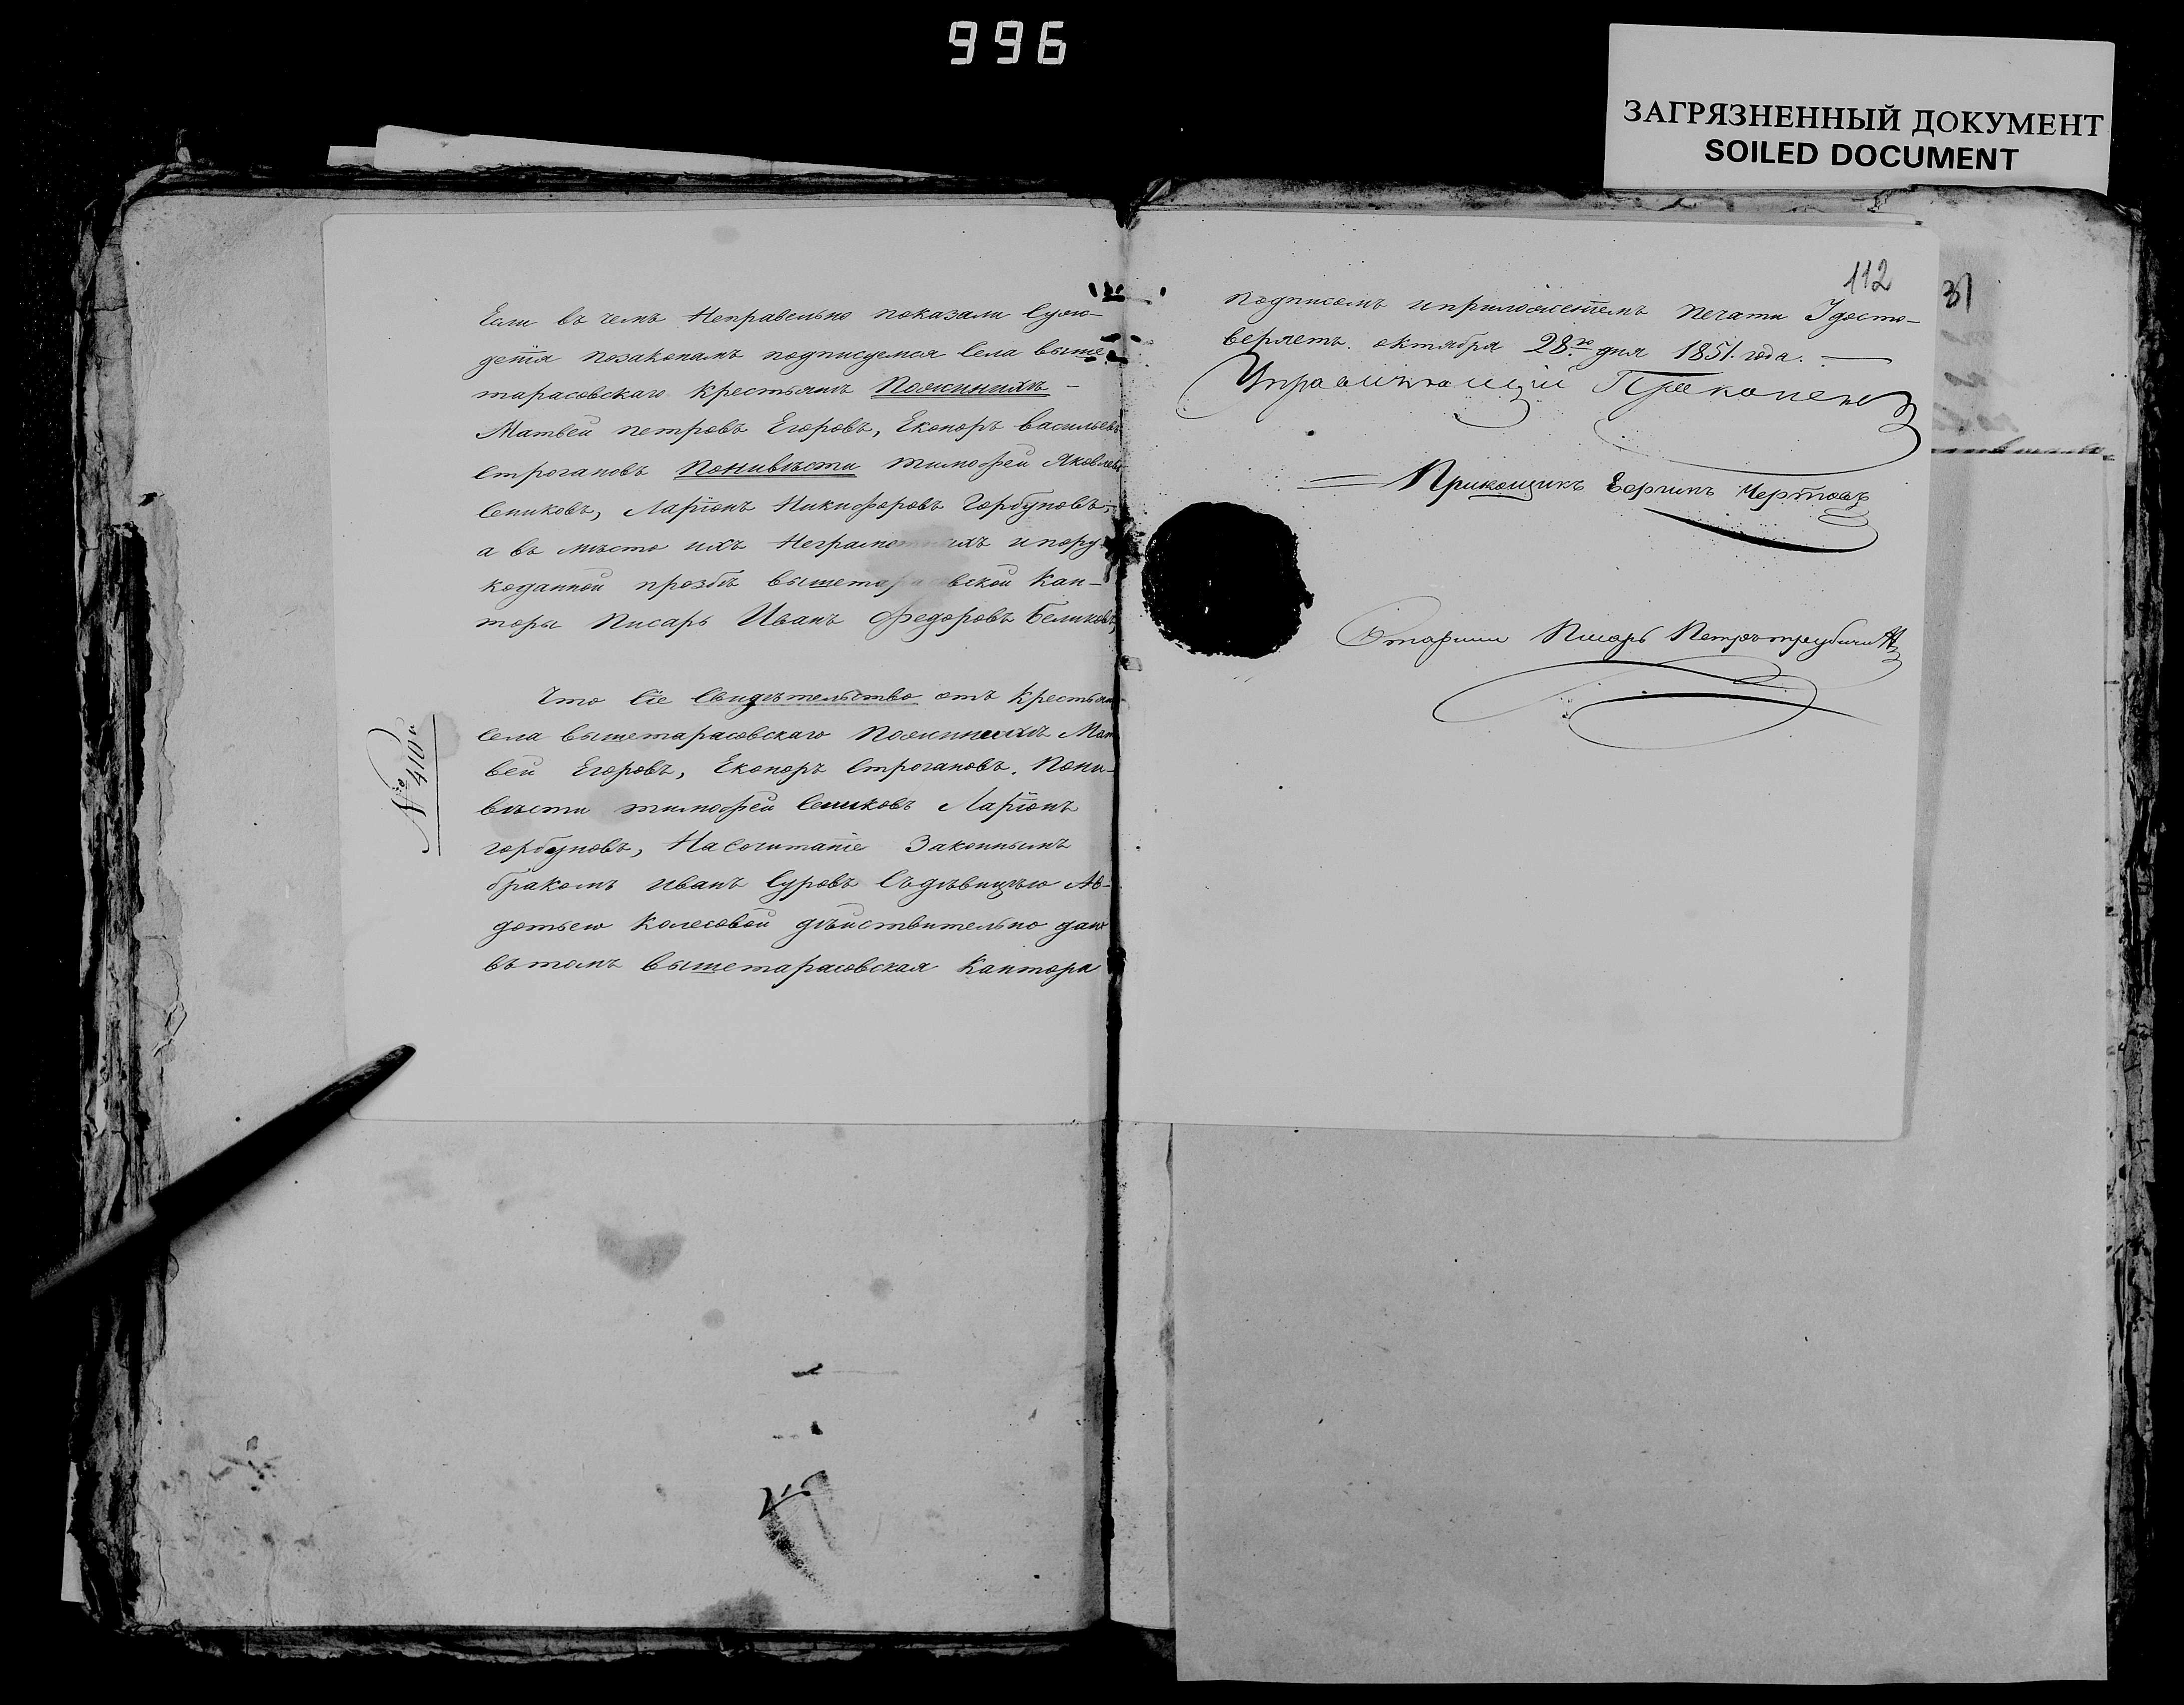 996
ЗАГРЯЗНЕННЫЙ ДОКУМЕНТ
SOILED DOCUMENT
Если въ чемъ Неправельно показали Суж-
детїя позаконамъ подписуемся Села выше
тарасовскаго Крестьянъ Пожинихъ -
Матвей петровъ Егоровъ, Екопоръ васильевъ
Строгановъ Поневѣсти тимофей Яковлевъ
Сениковъ, Ларїонъ Никифоровъ Горбуновъ,
а въ мѣсто ихъ Неграмотныхъ ипору-
коданной прозбѣ вышетарасовской Кан-
торы Писарь Иванъ Федоровъ Беликовъ
Что Сїе Свидѣтельство отъ Крестьян
Села вышетарасовскаго Пожинихъ Мат
вей Егоровъ, Екопоръ Строгановъ. Поне-
вѣсти тимофей Сениковъ Ларїонъ
горбуновъ, На Сочитанїе Законнымъ
бракомъ иванъ Суровъ Съдѣвицѣю Ав-
дотьею Колесовой дѣйствительно дано
вътомъ вышетарасовская Кантора
№ 410й
112
31
подписомъ иприложенїемъ печати Удосто-
веряетъ. октября 28го дня 1851. года. —
Управляющий
Прикащикъ Чертовъ
Старший Писарь Петръ